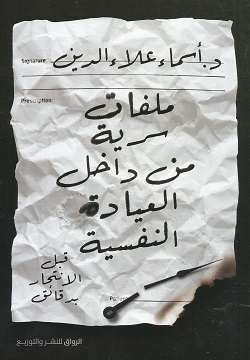 د. أسماء علاء الدين
Signature:
Prescription:
ملفات
سرية
من داخل
العيادة
النفسية
قبل
الانتحار
بدقائق
الرواق للنشر والتوزيع